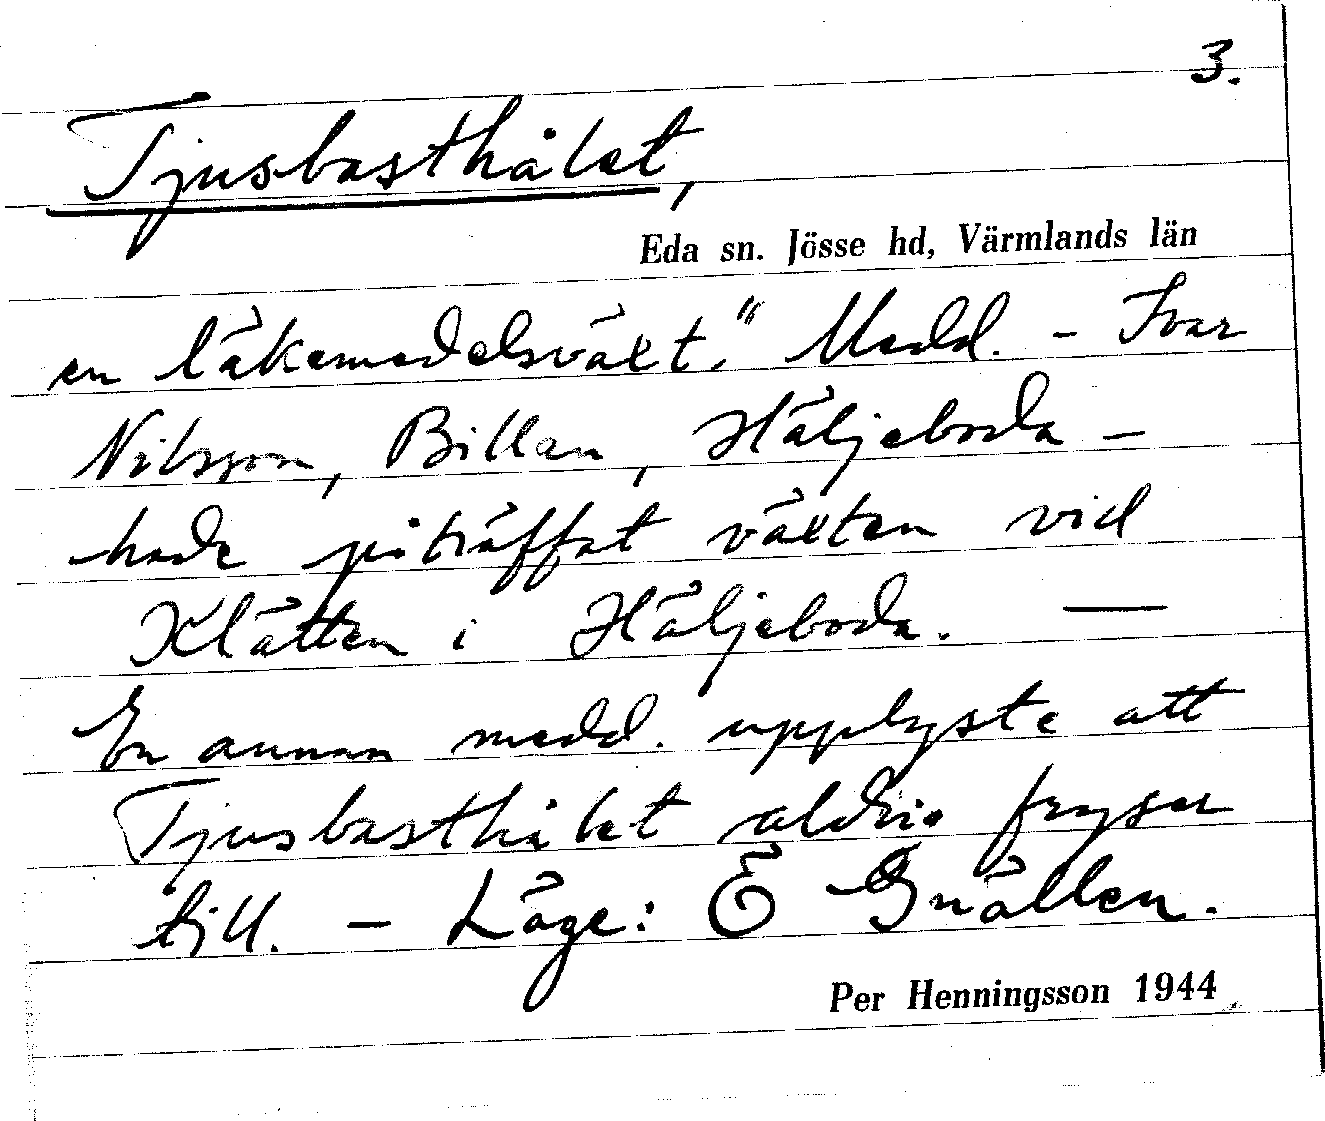 3.
Tjusbasthålet,
Eda sn. Jösse hd, Värmlands län
en läkemedelsväxt." Medd. - Ivar
Nilsson, Billan, Häljeboda -
hade påträffat växten vid
Klätten i Häljeboda. —
En annan medd. upplyste att
Tjusbasthålet aldrig fryser
till. - Läge: E Gnällen.
Per Henningsson 1944